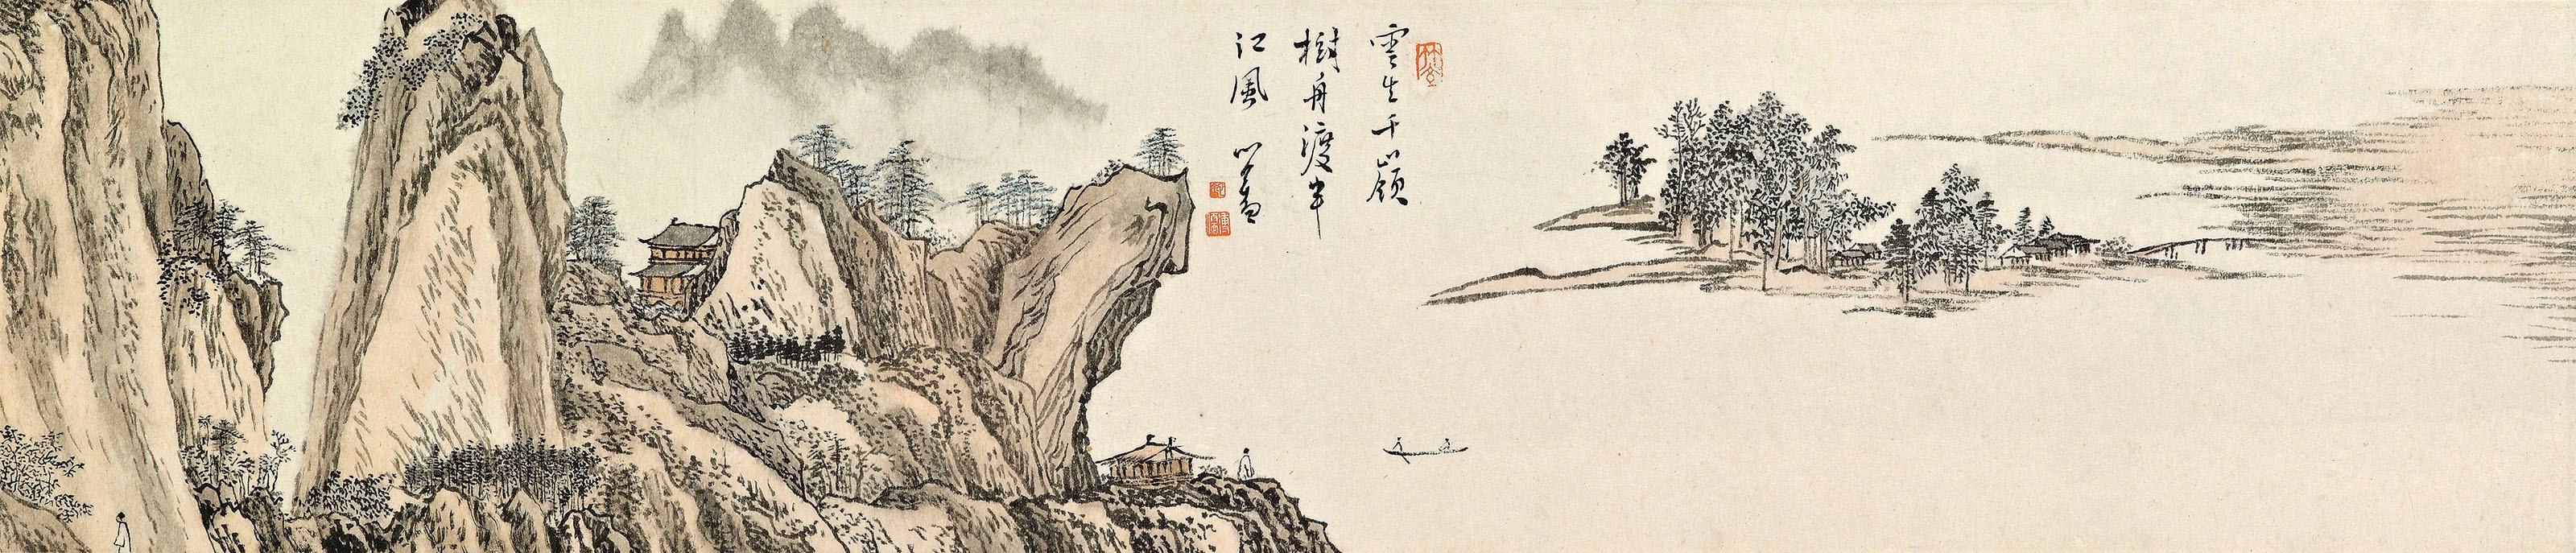 雲生千嶺
樹舟渡半
江風 心畬